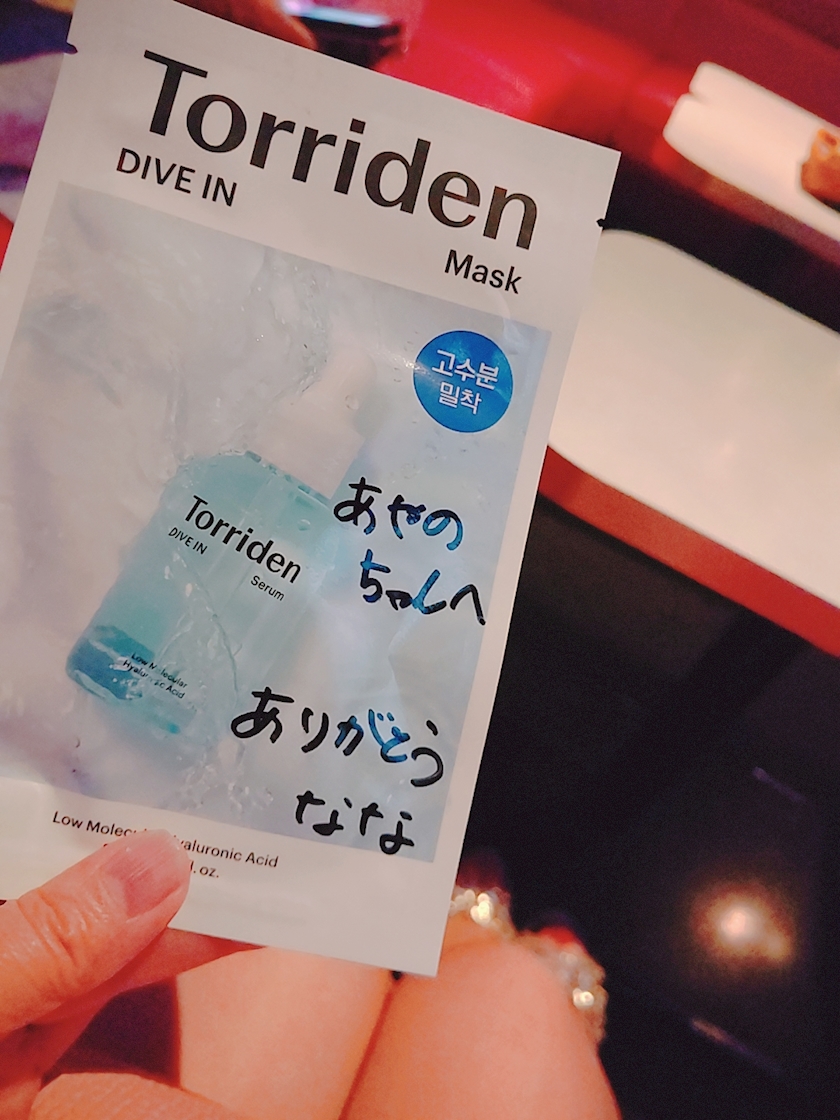 Torriden
DIVE IN
Mask
고수분
밀착
Torriden
DIVE IN
Serum
Low Molecular
Hyaluronic Acid
あやの
ちゃんへ
ありがとう
なな
Low Hyaluronic Acid
oz.